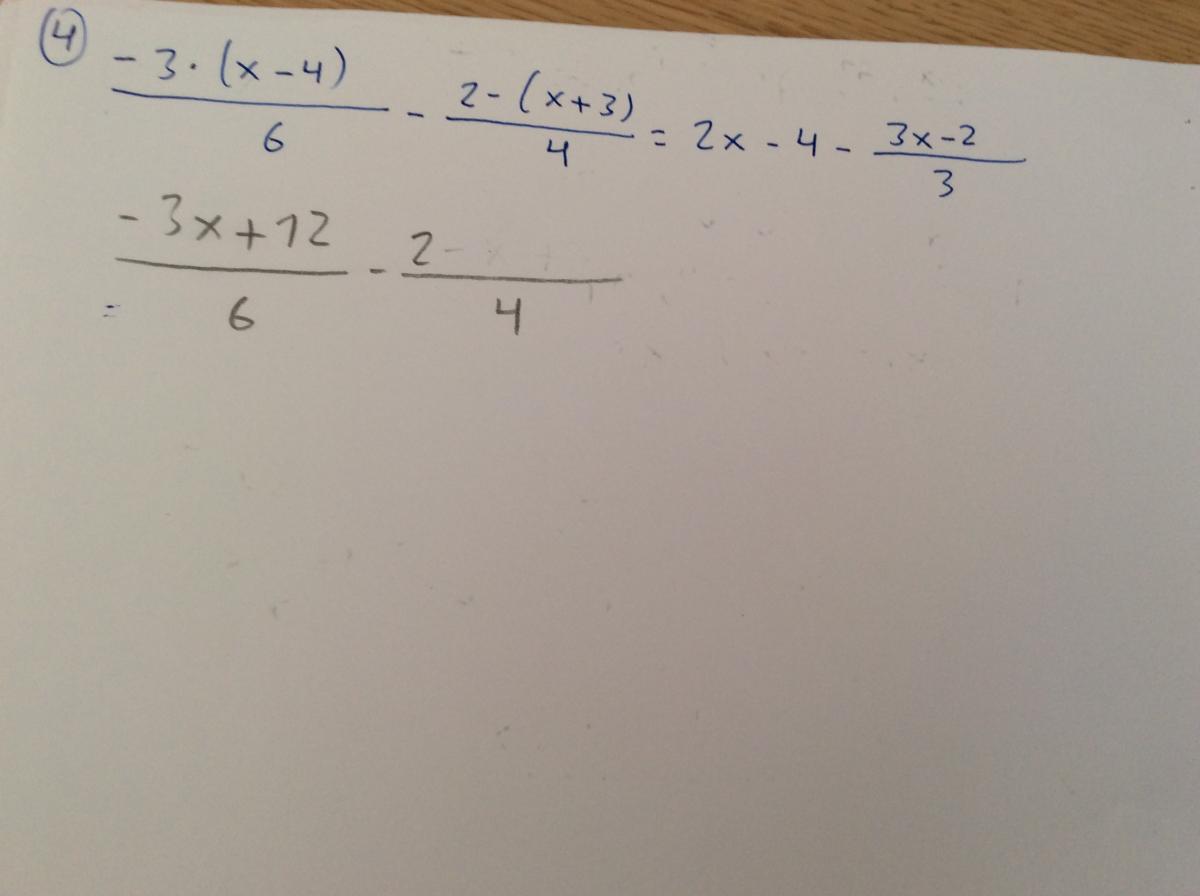 ④ -3·(x-4)/6 - 2-(x+3)/4 = 2x-4- 3x-2/3
-3x+12/6 - 2-/4
=